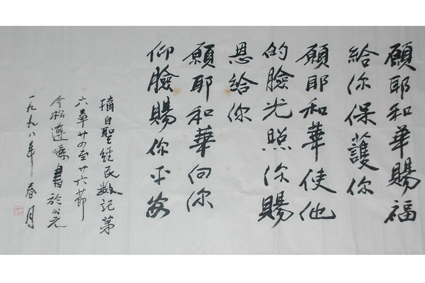 願耶和華賜福
給你保護你
願耶和華使他
的臉光照你賜
恩給你
願耶和華向你
仰臉賜你平安
摘自聖經民數記第
六章廿四至廿六節
今松遵囑書於公元
一九九八年春月